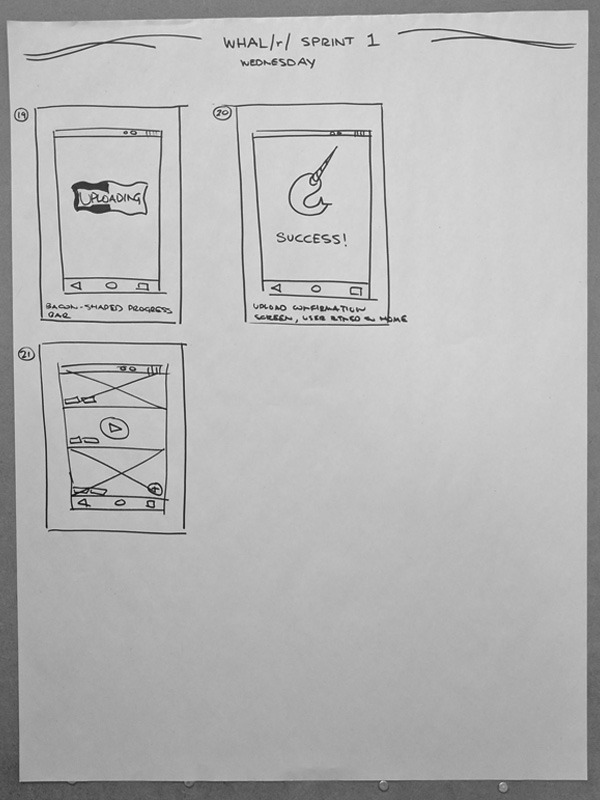 WHAL/r/ SPRINT 1
WEDNESDAY
19
UPLOADING
BACON-SHAPED PROGRESS
BAR
20
SUCCESS!
UPLOAD CONFIRMATION
SCREEN, USER HOME
21